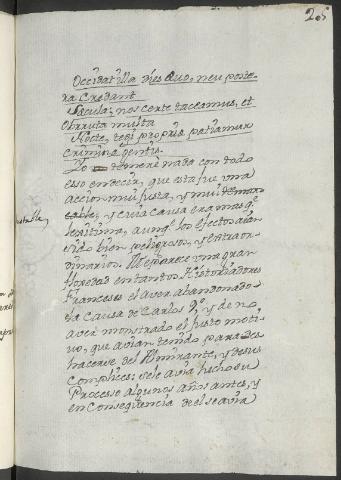 205
Occidat illa dies Quo, neu poste-
ra Credant
Sæcula; nos certe taceamus, et
Obruta multa
Nocte, tegi propriæ patiamur
crimina gentis.
Yo temere nada con todo
esso en decir, que esta fue una
accion mui justa, y mui
y cuia causa era mas q.e
lexitima, aunq.e los efectos aian
sido bien peligrosos, y extraor-
dinarios. Me parece una gran
floxedad en tantos Historiadores
Franceses el aver abandonado
la Causa de Carlos 9.o y de no
aver monstrado el Justo moti-
vo, que avian tenido para des
hacerse del Almirante, y de sus
Complices: sele avia hecho su
Processo algunos años antes, y
en Conseqüencia de el se avia